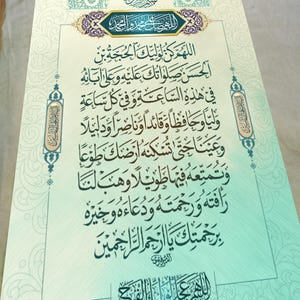 اللهم صل علی محمد وآل محمد
اللهم کن لولیک الحجة بن
الحسن صلواتک علیه وعلی آبائه
في هذه الساعة وفي کل ساعة
ولیا وحافظا وقائدا وناصرا ودلیلا
وعینا حتی تسکنه أرضک طوعا
وتمتعه فیها طویلا وهب لنا
رأفته ورحمته ودعاءه وخیره
برحمتک یا أرحم الراحمین